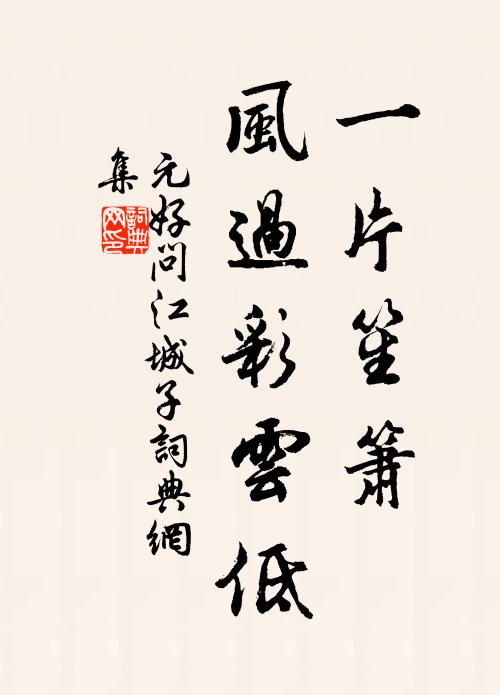 一片笙簫
風過彩雲低
元好問江城子詞典網
集
詞典網印